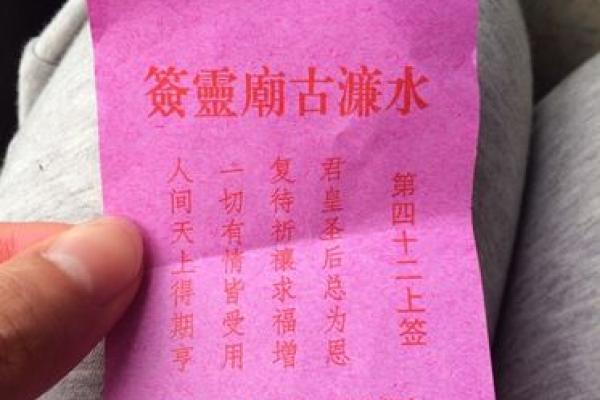 水濂古廟靈簽
第四十二上签
君皇圣后总为恩
复待祈禳求福增
一切有情皆受用
人间天上得期亨